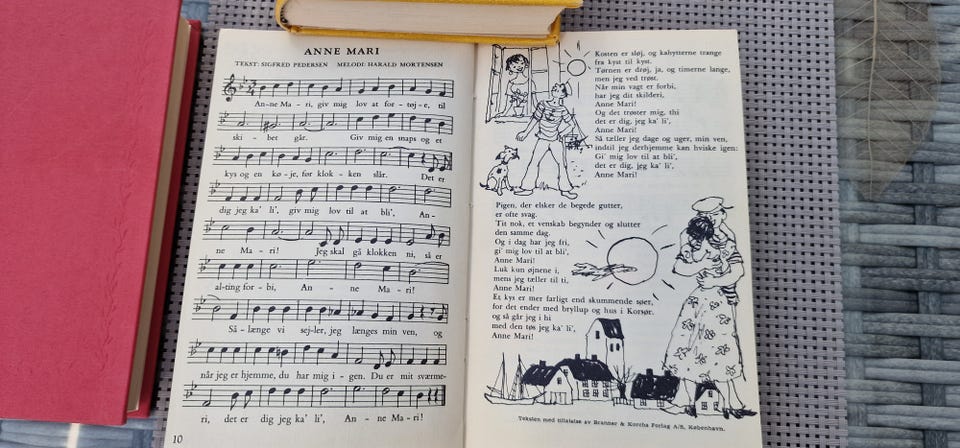 ANNE MARI
TEKST: SIGFRED PEDERSEN MELODI: HARALD MORTENSEN
An-ne Ma - ri, giv mig lov at for - tøj - e, til
ski - bet går. Giv mig en snaps og et
kys og en kø - je, før klok - ken slår. Det er
dig jeg ka' li', giv mig lov til at bli', An-
ne Ma - ri! Jeg skal gå klokken ni, så er
al-ting for - bi, An - ne Ma - ri!
Så - længe vi sej-ler, jeg længes min ven, og
når jeg er hjemme, du har mig i - gen. Du er mit sværme-
ri, det er dig jeg ka' li', An - ne Ma - ri!
10
Kosten er sløj, og kahytterne trange
fra kyst til kyst.
Tørnen er drøj, ja, og timerne lange,
men jeg ved trøst.
Når min vagt er forbi,
har jeg dit skilderi,
Anne Mari!
Og det trøster mig, thi
det er dig, jeg ka' li',
Anne Mari!
Så tæller jeg dage og uger, min ven,
indtil jeg derhjemme kan hviske igen:
Gi' mig lov til at bli',
det er dig, jeg ka' li',
Anne Mari!
Pigen, der elsker de begede gutter,
er ofte svag.
Tit nok, et venskab begynder og slutter
den samme dag.
Og i dag har jeg fri,
gi' mig lov til at bli',
Anne Mari!
Luk kun øjnene i,
mens jeg tæller til ti,
Anne Mari!
Et kys er mer farligt end skummende søer,
for det ender med bryllup og hus i Korsør.
og så går jeg i hi
med den tøs jeg ka' li',
Anne Mari!
Teksten med tilladelse av Branner & Korchs Forlag A/S, København.